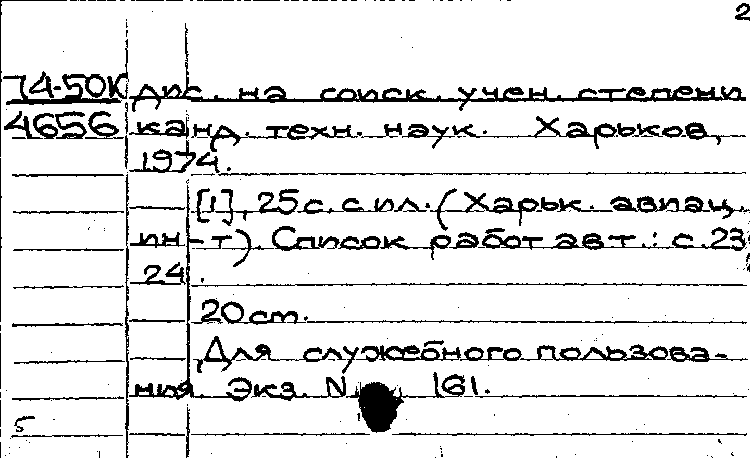 2
74-50К дис. на соиск. учен. степени
4656 канд. техн. наук. Харьков,
1974.
[1], 25 с. с ил. (Харьк. авиац.
ин-т). Список работ авт.: с. 23
24.
20 см.
Для служебного пользова-
ния. Экз. N 161.
5